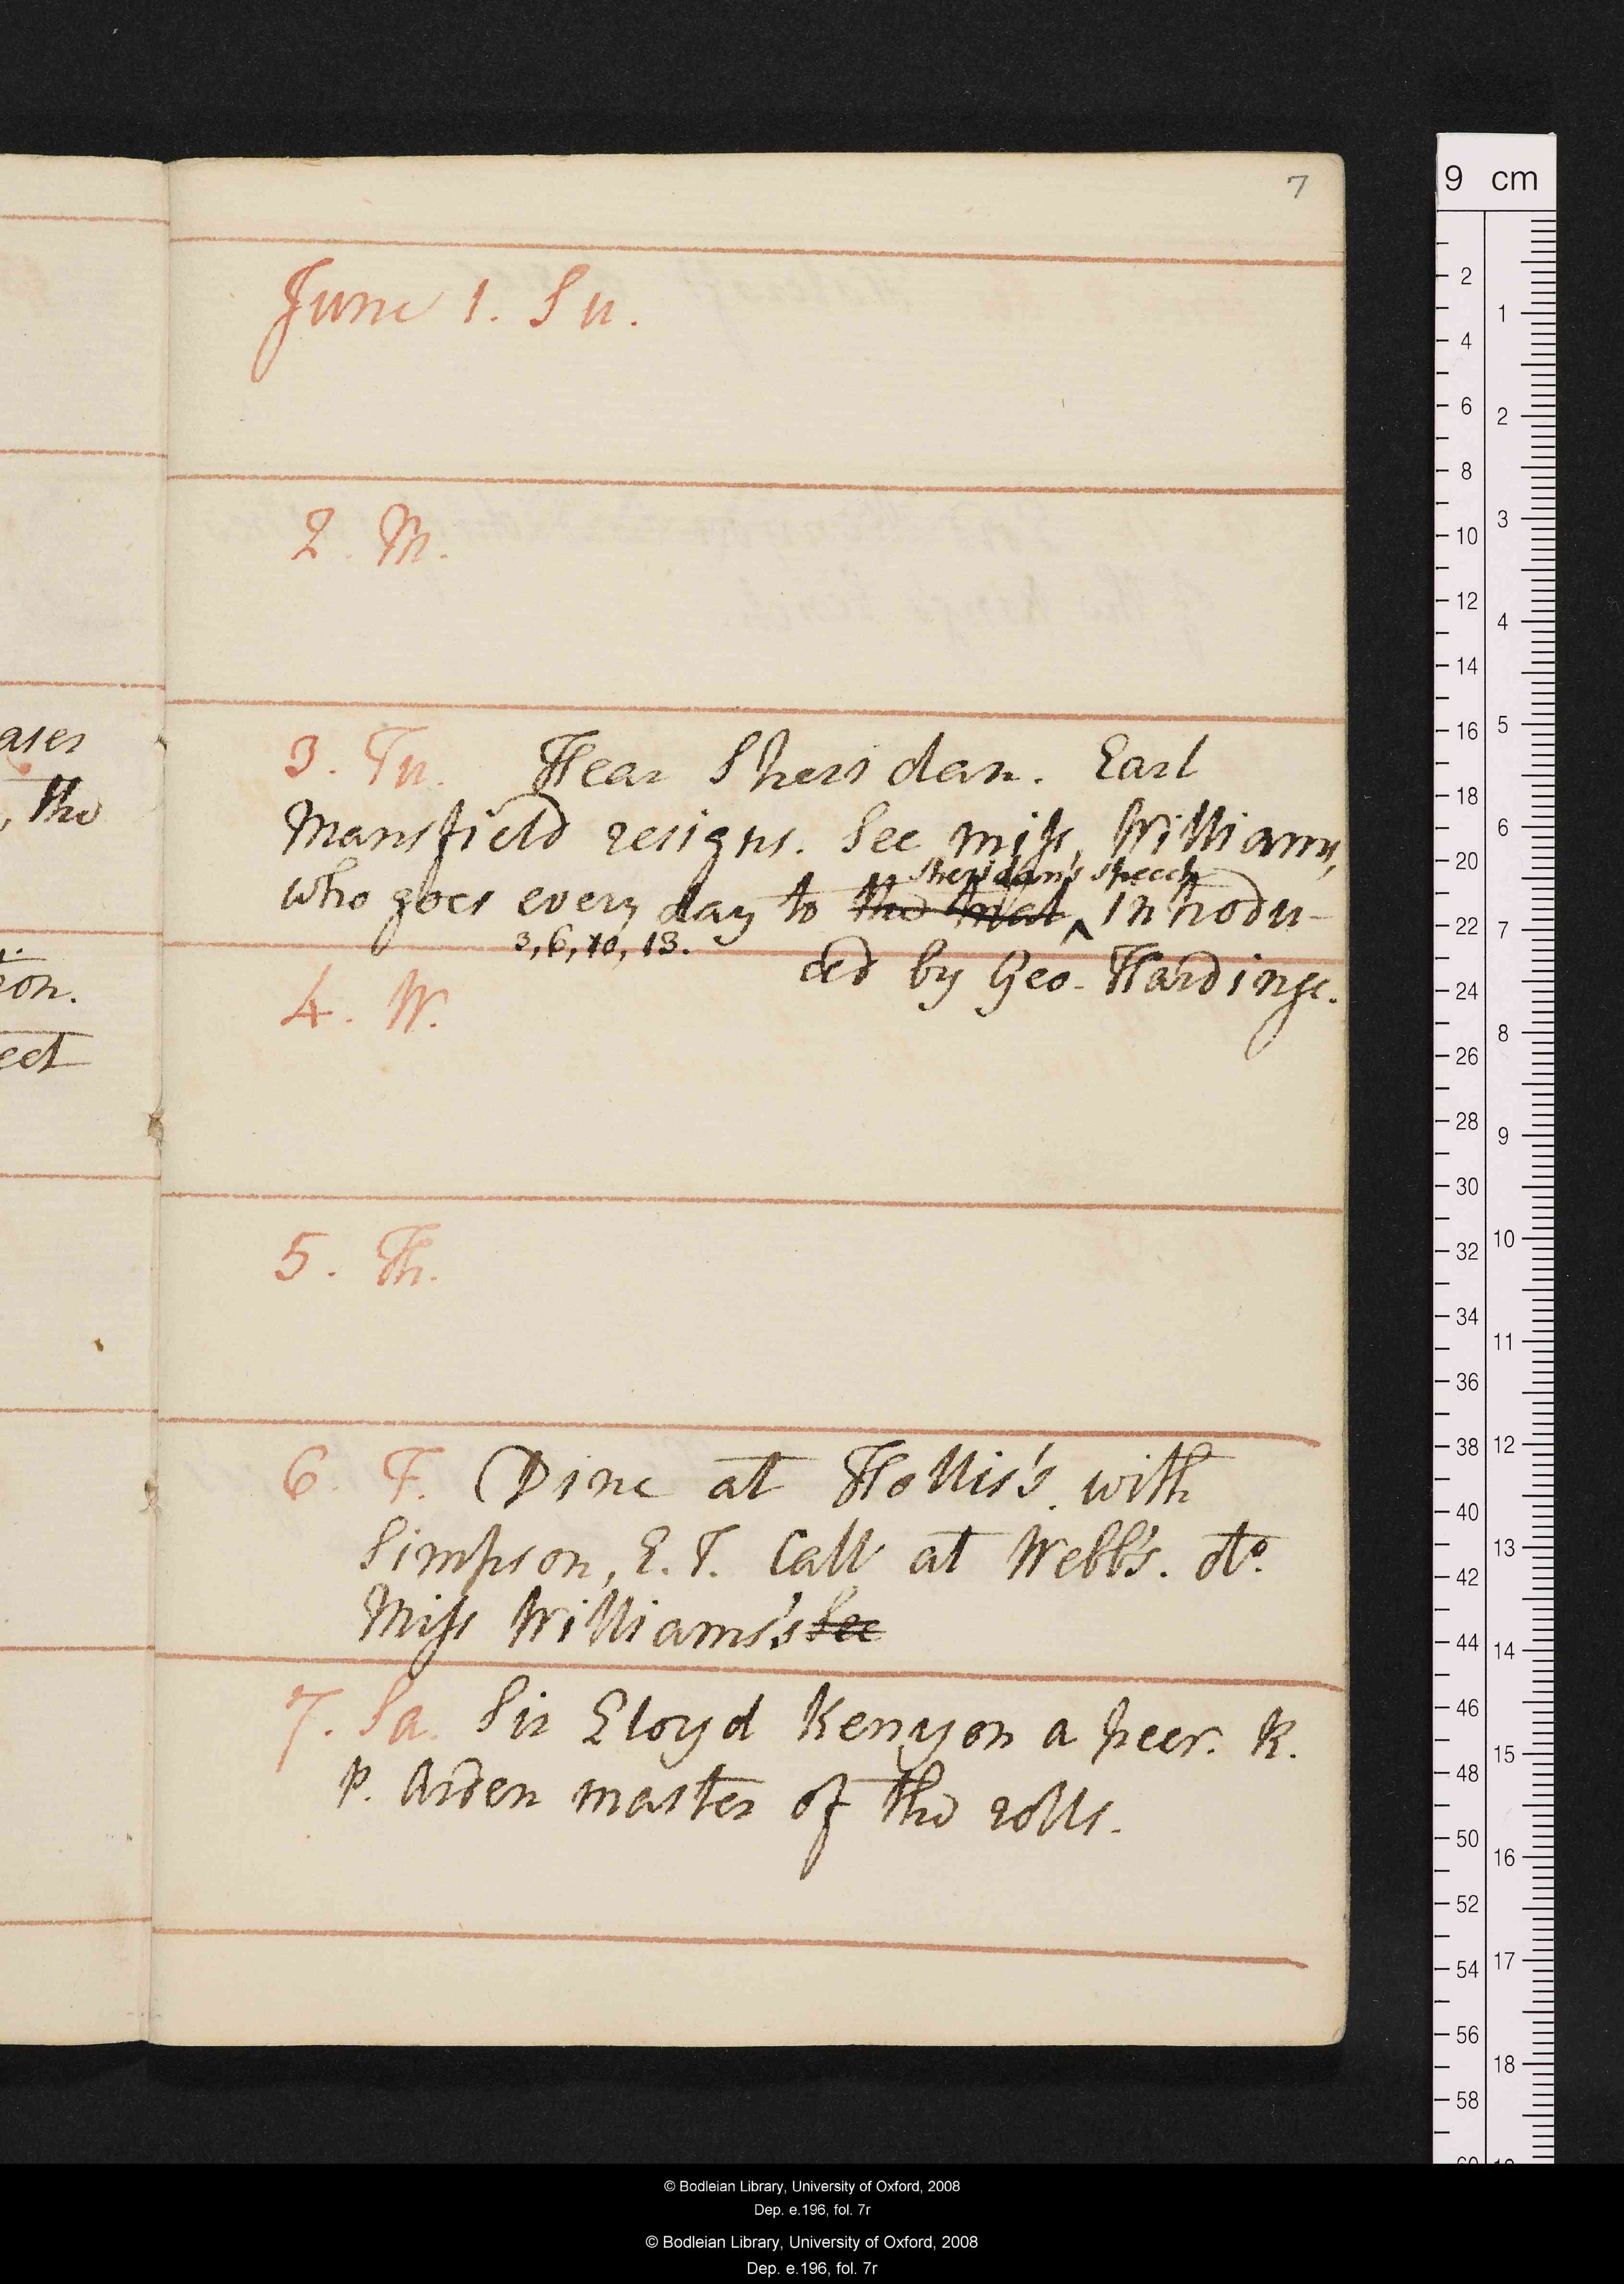 7
June 1. Su.
2. M.
3. Tu. Hear Sheridan. Earl
Mansfield resigns. See miss Williams,
Sheridan's speech
who goes every day to the trial ^ Introdu-
3, 6, 10, 13.
ced by Geo. Hardinge.
4. W.
5. Th.
6. F. Dine at Hollis's, with
Simpson, E. T. Call at Webb's. dto
Miss Williams's See
7. Sa. Sir Lloyd Kenyon a peer. R.
P. Arden master of the rolls.
ases
, the
eon.
eet
9 cm
2
4
6
8
10
12
14
16
18
20
22
24
26
28
30
32
34
36
38
40
42
44
46
48
50
52
54
56
58
1
2
3
4
5
6
7
8
9
10
11
12
13
14
15
16
17
18
© Bodleian Library, University of Oxford, 2008
Dep. e.196, fol. 7r
© Bodleian Library, University of Oxford, 2008
Dep. e.196, fol. 7r